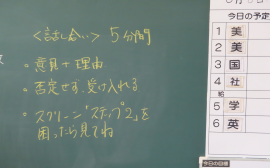 <話し合い> 5分間
=意見+理由
=否定せず、受け入れる
=スクリーン"ステップ2"を
困ったら見てね
今日の予定
1 美
2 美
3 国
4 社
給
5 学
6 英
今日の目標